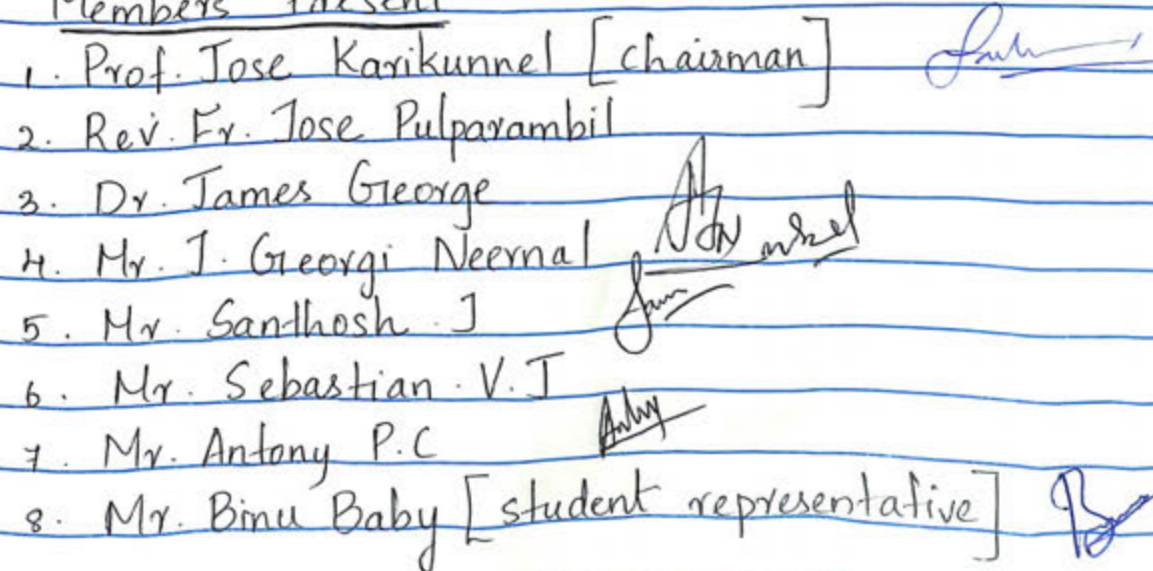 Members Present
1. Prof. Jose Karikunnel [chairman]
2. Rev. Fr. Jose Pulparambil
3. Dr. James George
4. Mr. J. Georgi Neernal
5. Mr. Santhosh . J
6. Mr. Sebastian . V.J
7. Mr. Antony P.C
8. Mr. Binu Baby [student representative]